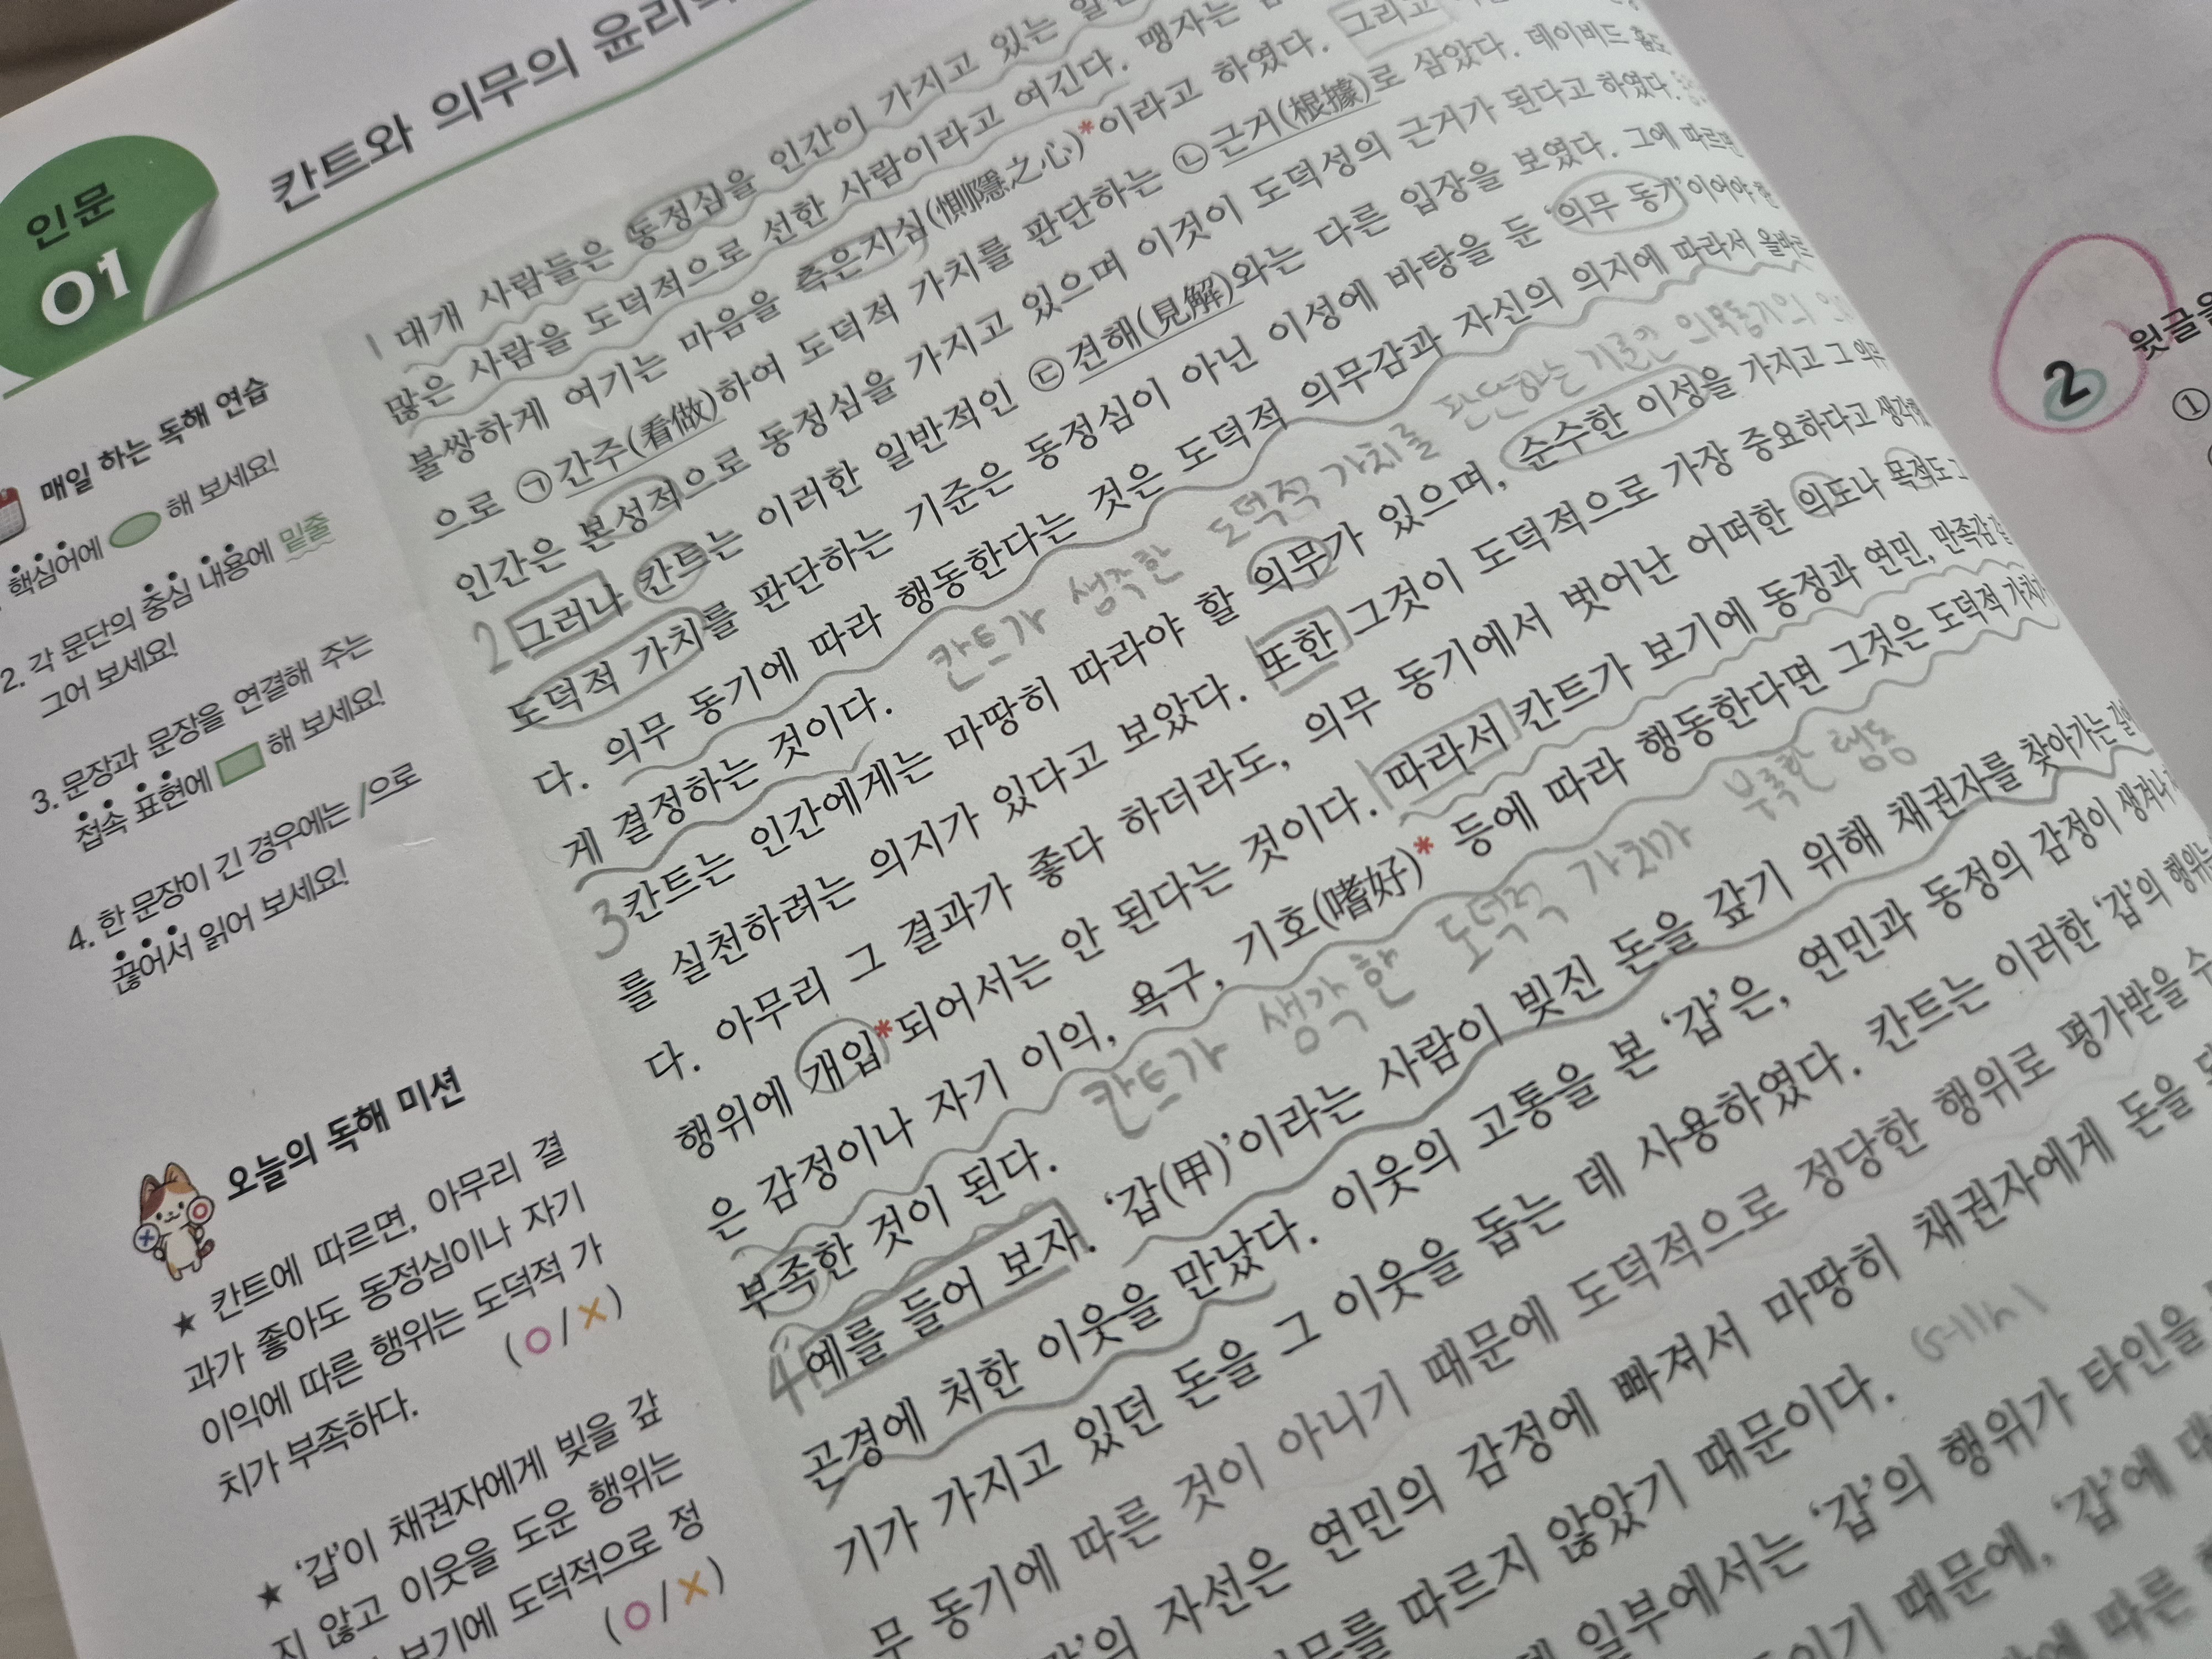 인문
01
칸트와 의무의 윤리
매일 하는 독해 연습
핵심어에 해 보세요!
2. 각 문단의 중심 내용에 밑줄
그어 보세요!
3. 문장과 문장을 연결해 주는
접속 표현에 해 보세요!
4. 한 문장이 긴 경우에는 /으로
끊어서 읽어 보세요!
오늘의 독해 미션
★ 칸트에 따르면, 아무리 결
과가 좋아도 동정심이나 자기
이익에 따른 행위는 도덕적 가
치가 부족하다. (O/X)
★ '갑'이 채권자에게 빚을 갚
지 않고 이웃을 도운 행위는
보기에 도덕적으로 정
(O/X)
1 대개 사람들은 동정심을 인간이 가지고 있는
많은 사람을 도덕적으로 선한 사람이라고 여긴다. 맹자는
불쌍하게 여기는 마음을 측은지심(惻隱之心)*이라고 하였다. 그리고
으로 ㉠간주(看做)하여 도덕적 가치를 판단하는 ㉡근거(根據)로 삼았다. 데이비드 흄도
인간은 본성적으로 동정심을 가지고 있으며 이것이 도덕성의 근거가 된다고 하였다.
2 그러나 칸트는 이러한 일반적인 ㉢견해(見解)와는 다른 입장을 보였다. 그에 따르면
도덕적 가치를 판단하는 기준은 동정심이 아닌 이성에 바탕을 둔 '의무 동기'이어야 한
다. 의무 동기에 따라 행동한다는 것은 도덕적 의무감과 자신의 의지에 따라서 올바르
게 결정하는 것이다. 칸트가 생각한 도덕적 가치를 판단하는 기준인 의무동기의
3 칸트는 인간에게는 마땅히 따라야 할 의무가 있으며, 순수한 이성을 가지고 그 의무
를 실천하려는 의지가 있다고 보았다. 또한 그것이 도덕적으로 가장 중요하다고
다. 아무리 그 결과가 좋다 하더라도, 의무 동기에서 벗어난 어떠한 의도나 목적도 그
행위에 개입*되어서는 안 된다는 것이다. 따라서 칸트가 보기에 동정과 연민, 만족감 같
은 감정이나 자기 이익, 욕구, 기호(嗜好)* 등에 따라 행동한다면 그것은 도덕적 가치가
부족한 것이 된다. 칸트가 생각한 도덕적 가치가 부족한 행동
4 예를 들어 보자. '갑(甲)'이라는 사람이 빚진 돈을 갚기 위해 채권자를 찾아가는 길에
곤경에 처한 이웃을 만났다. 이웃의 고통을 본 '갑'은, 연민과 동정의 감정이 생겨나
기가 가지고 있던 돈을 그 이웃을 돕는 데 사용하였다. 칸트는 이러한 '갑'의 행위는
무 동기에 따른 것이 아니기 때문에 도덕적으로 정당한 행위로 평가받을 수
의 자선은 연민의 감정에 빠져서 마땅히 채권자에게 돈을
의무를 따르지 않았기 때문이다.
일부에서는 '갑'의 행위가 타인을
이기 때문에, '갑'에
에 따른
2 윗글을
①